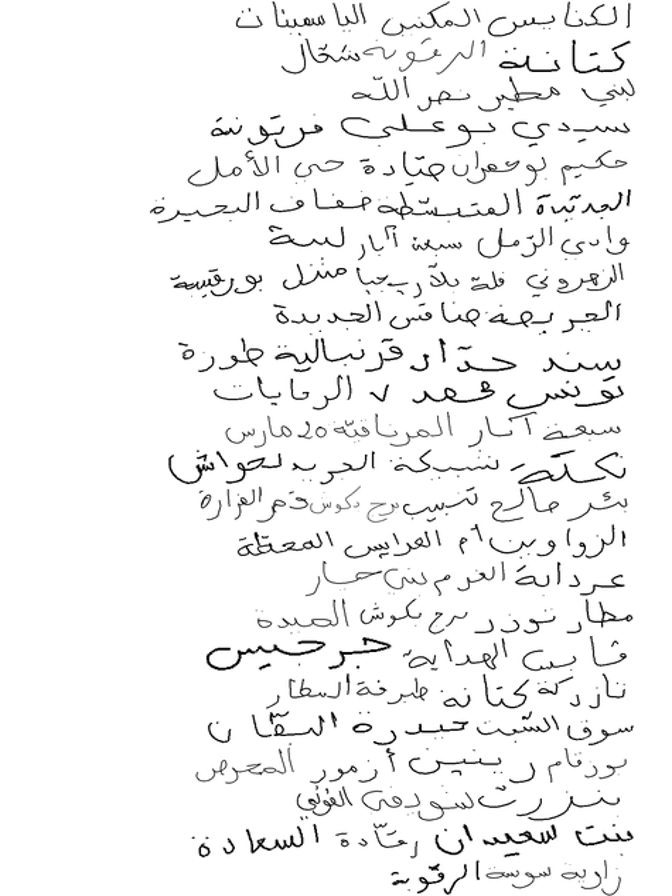 الكنايس المكنين الياسمينات
كتانة الرقوبة شعّال
لبني مطير نصر الله
سيدي بوعلي فريونة
حكيم بوعفران صيّادة حي الأمل
الجديدة المتبسّطة ضفاف البحيرة
وادي الرّمل سبعة آبار لبنة
الزهروني فلة بلاريجيا منزل بورقيبة
العريضة صفاقس الجديدة
سند حدّاد قرنبالية طورة
تونس محمد ٧ الرقابات
سبعة آبار المرناقيّة 20 مارس
تكلسة شبيكة العريد لحواش
بئر صالح تسبيب برج بكوش قصر الفزارة
الزواوين أم العرايس المحطّة
عردابة الغرم بني حسار
مطار توزر برج بكوش الصيدة
قابس الهداية جرجيس
تازركة كتانة طبرفة السطار
سوق السّبت حيدرة السقّان
بورقام رينين أزمور المعرض
بنزرت سويدفي الفولي
بنت سعيدان رقّادة السعادة
زاوية سوسة الرقوبة